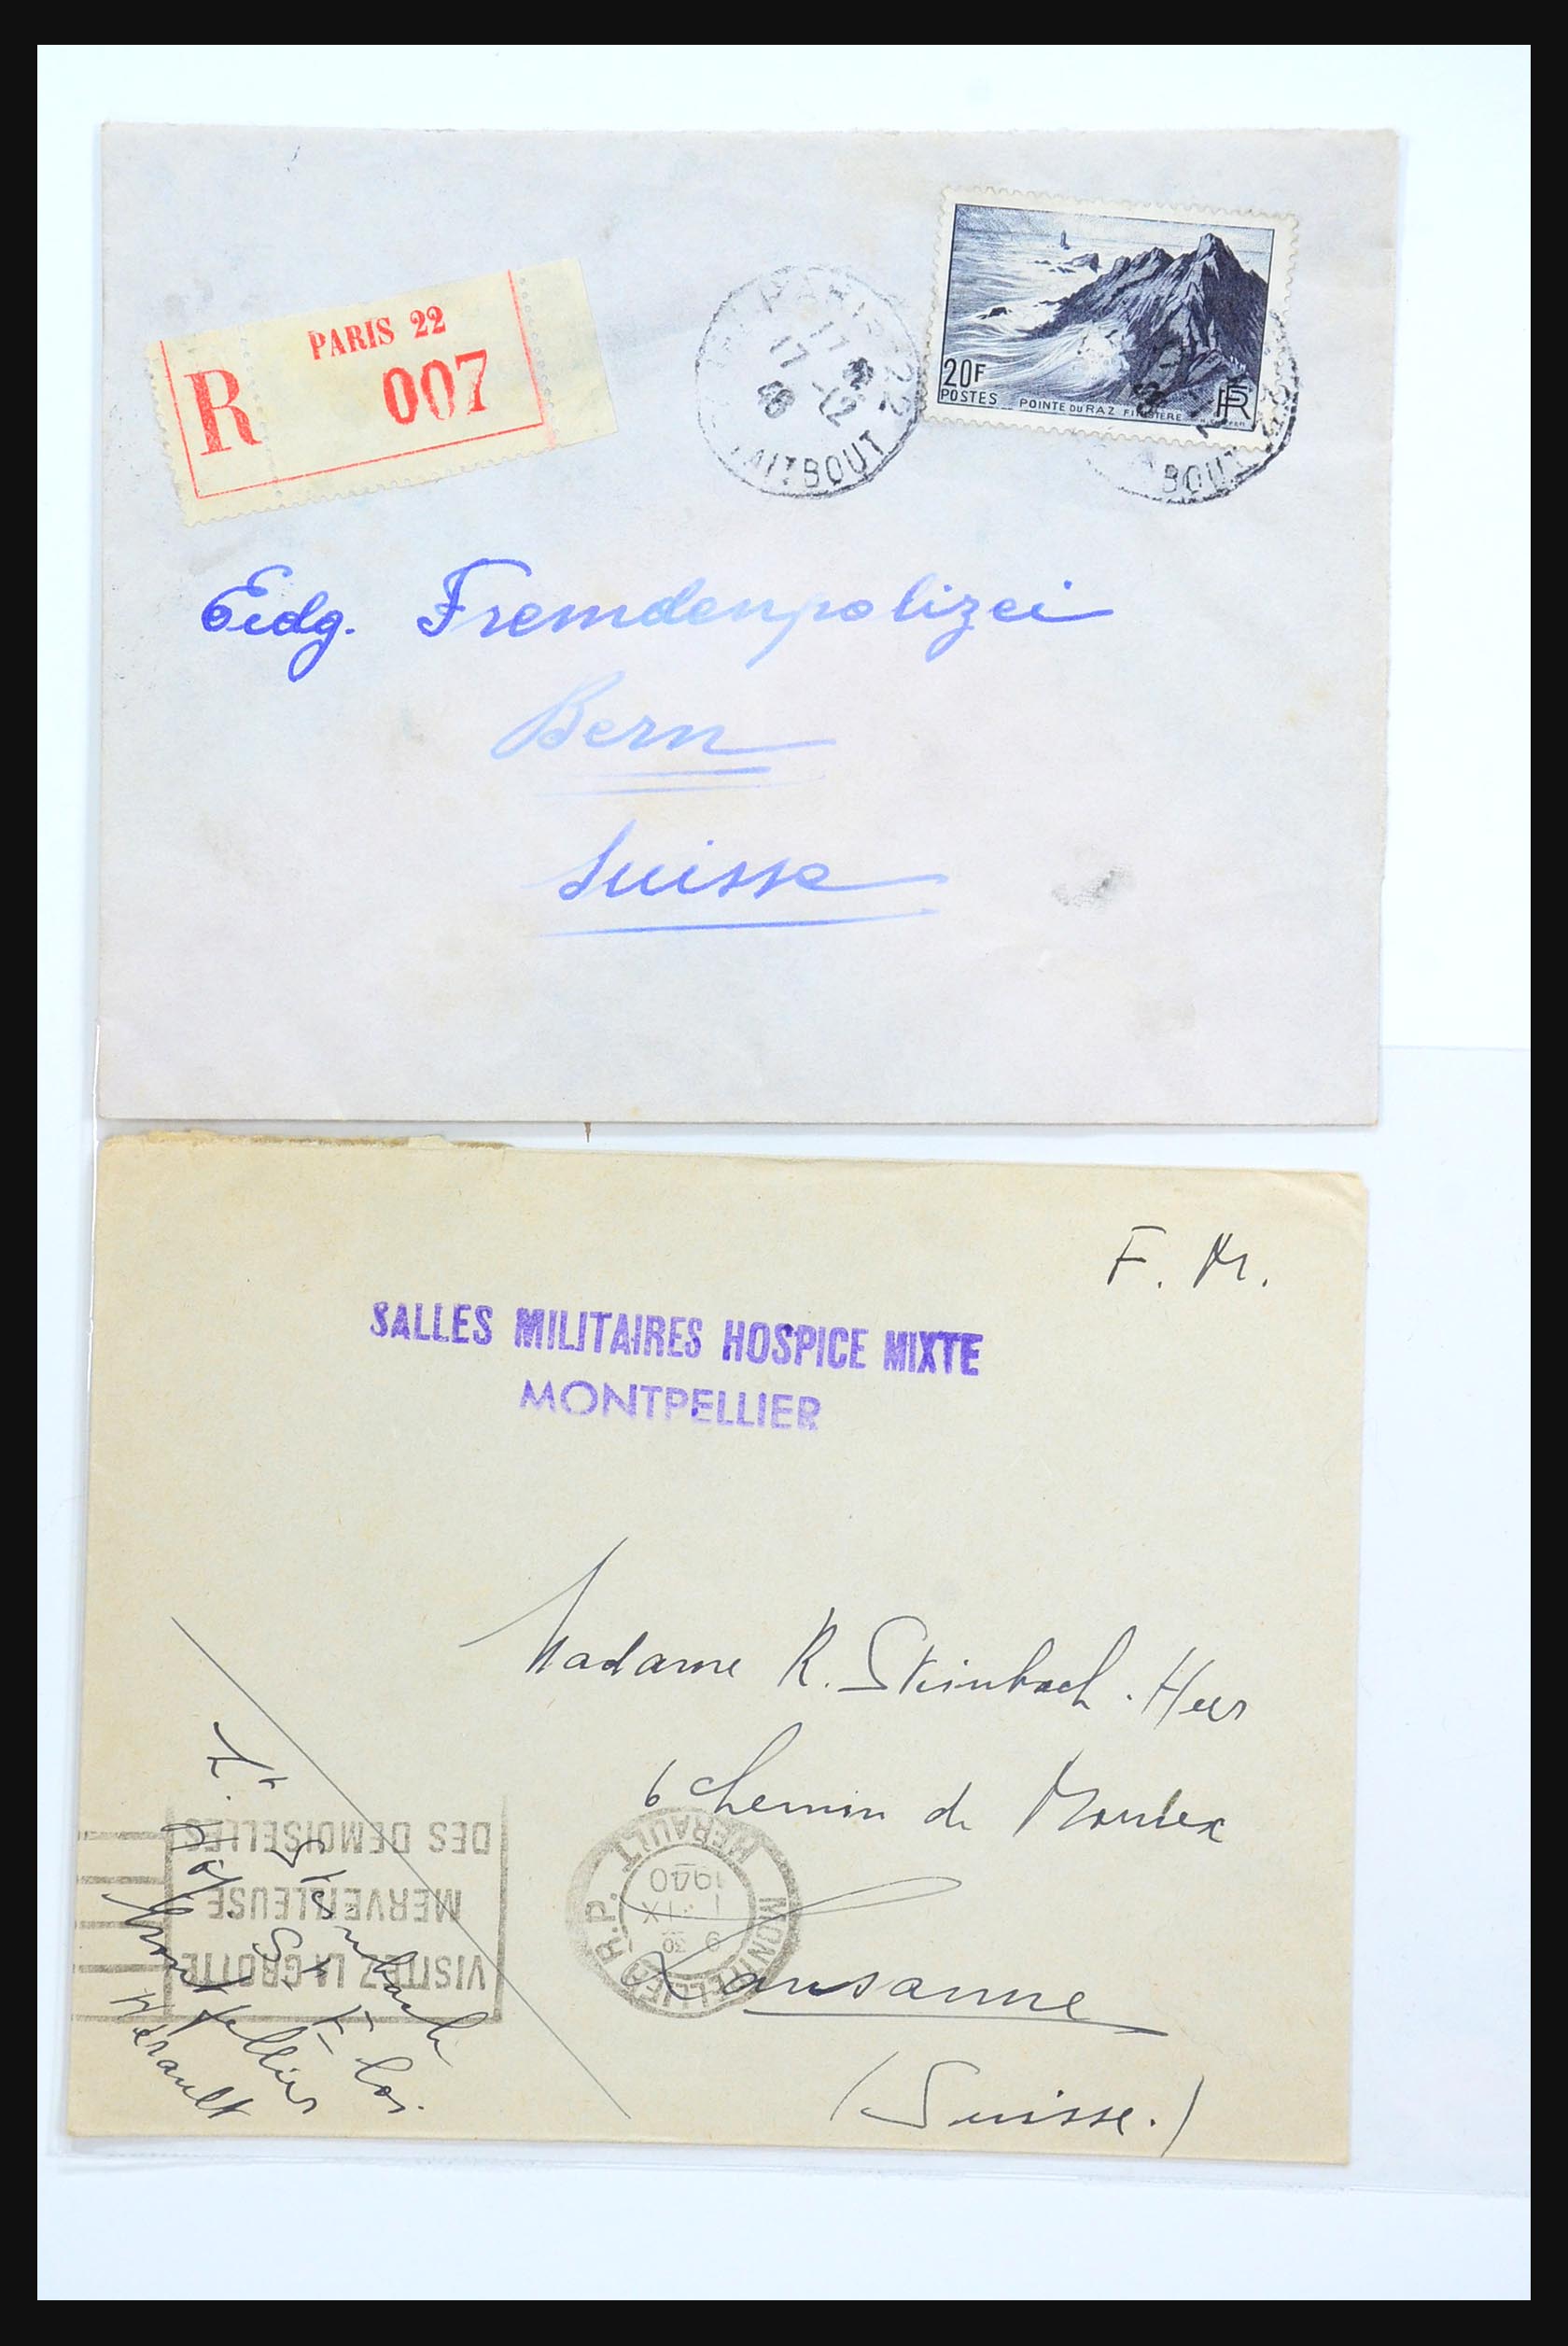 PARIS 22
R 007
PARIS 22
17 H
17 - 12
46
TAITBOUT
20F
POSTES
POINTE DU RAZ FINISTERE
RF
BOUT
Eidg. Fremdenpolizei
Bern
Suisse
F. M.
SALLES MILITAIRES HOSPICE MIXTE
MONTPELLIER
Madame R. Steinbach-Heer
6 chemin de Mornex
Lausanne
(Suisse.)
MONTPELLIER R.P.
9 30
1 - IX
1940
HERAULT
VISITEZ LA GROTTE
MERVEILLEUSE
DES DEMOISELLES
Lt Steinbach
Hôp St Eloi
Montpellier
Hérault